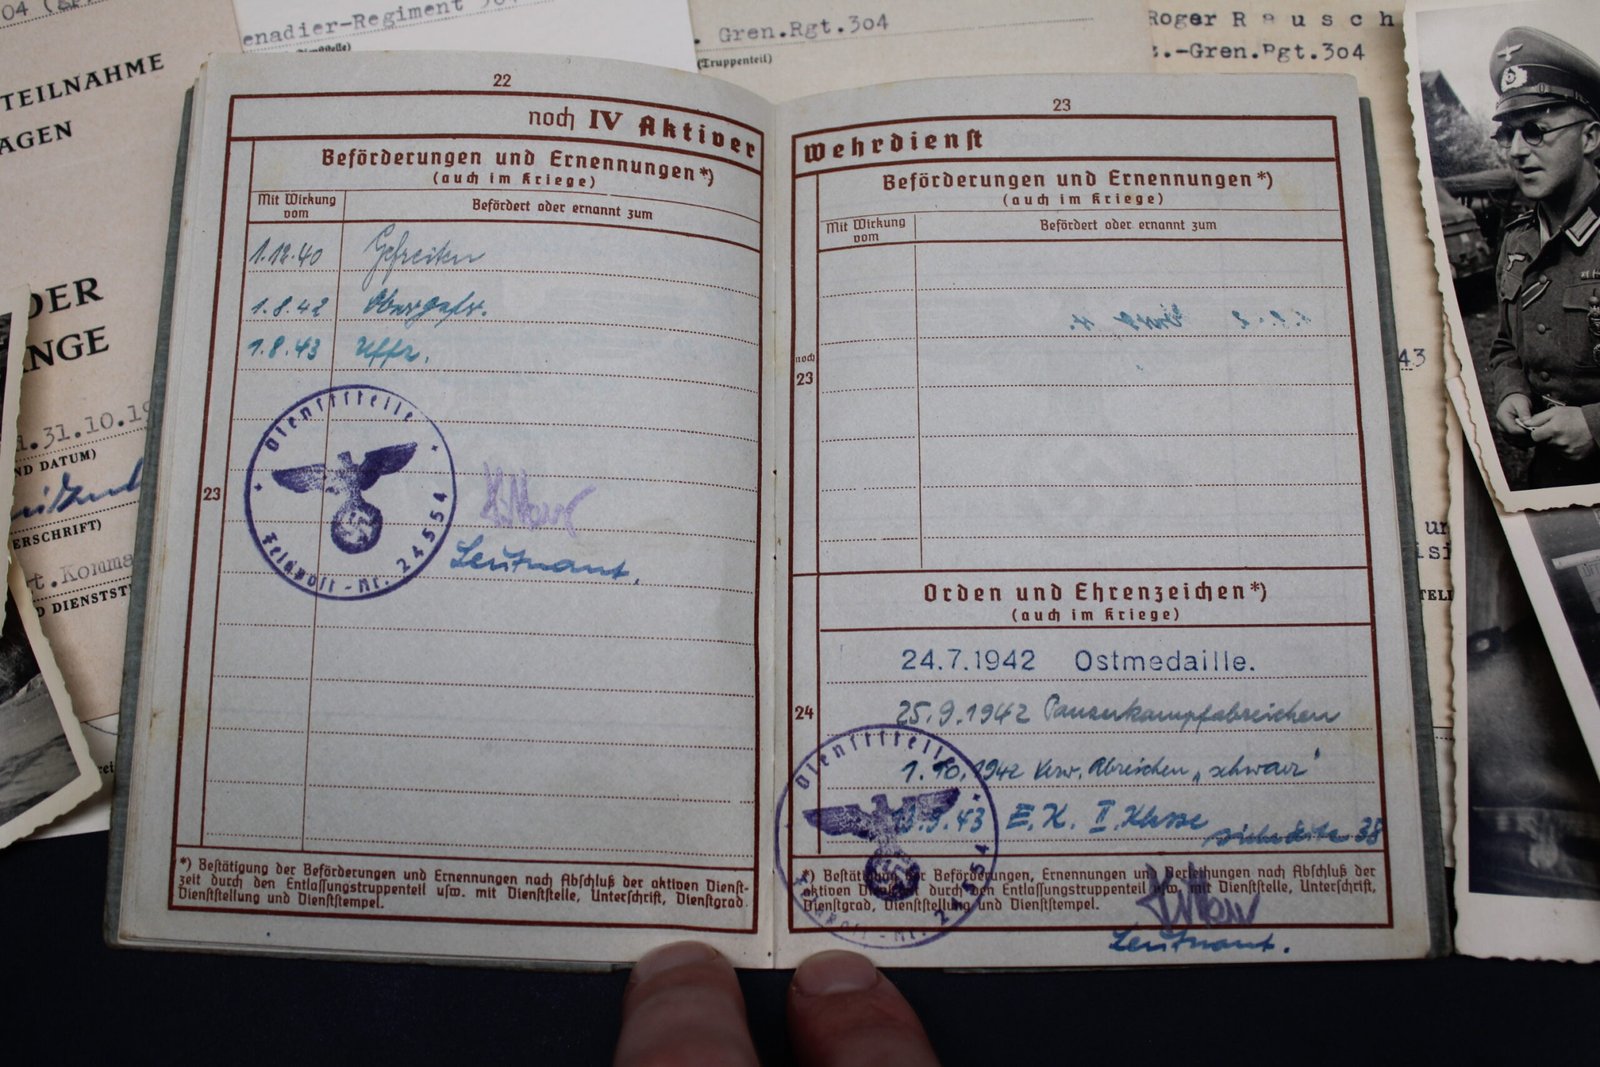 04
TEILNAHME
AGEN
DER
NGE
31.10.19
ND DATUM)
ERSCHRIFT)
t.Komma
D DIENSTST
enadier-Regiment 304
. Gren.Rgt.3o4
(Truppenteil)
Roger Rausch
z.-Gren.Rgt.3o4
43
22
noch IV Aktiver
Beförderungen und Ernennungen*)
(auch im Kriege)
Mit Wirkung vom
Befördert oder ernannt zum
1.12.40 Gefreiten
1.8.42 Obergefr.
1.8.43 Uffz.
23
Dienststelle
Feldpost-Nr. 24554
Leutnant.
*) Bestätigung der Beförderungen und Ernennungen nach Abschluß der aktiven Dienst-
zeit durch den Entlassungstruppenteil usw. mit Dienststelle, Unterschrift, Dienstgrad
Dienststellung und Dienststempel.
23
Wehrdienst
Beförderungen und Ernennungen*)
(auch im Kriege)
Mit Wirkung vom
Befördert oder ernannt zum
noch
23
Orden und Ehrenzeichen*)
(auch im Kriege)
24.7.1942 Ostmedaille.
24
25.9.1942 Panzerkampfabzeichen
1.10.1942 Verw. Abzeichen „schwarz"
.9.43 E.K. II. Klasse
38
Dienststelle
24554
*) Bestätigung der Beförderungen, Ernennungen und Verleihungen nach Abschluß der
aktiven Dienstzeit durch den Entlassungstruppenteil usw. mit Dienststelle, Unterschrift,
Dienstgrad, Dienststellung und Dienststempel.
Leutnant.